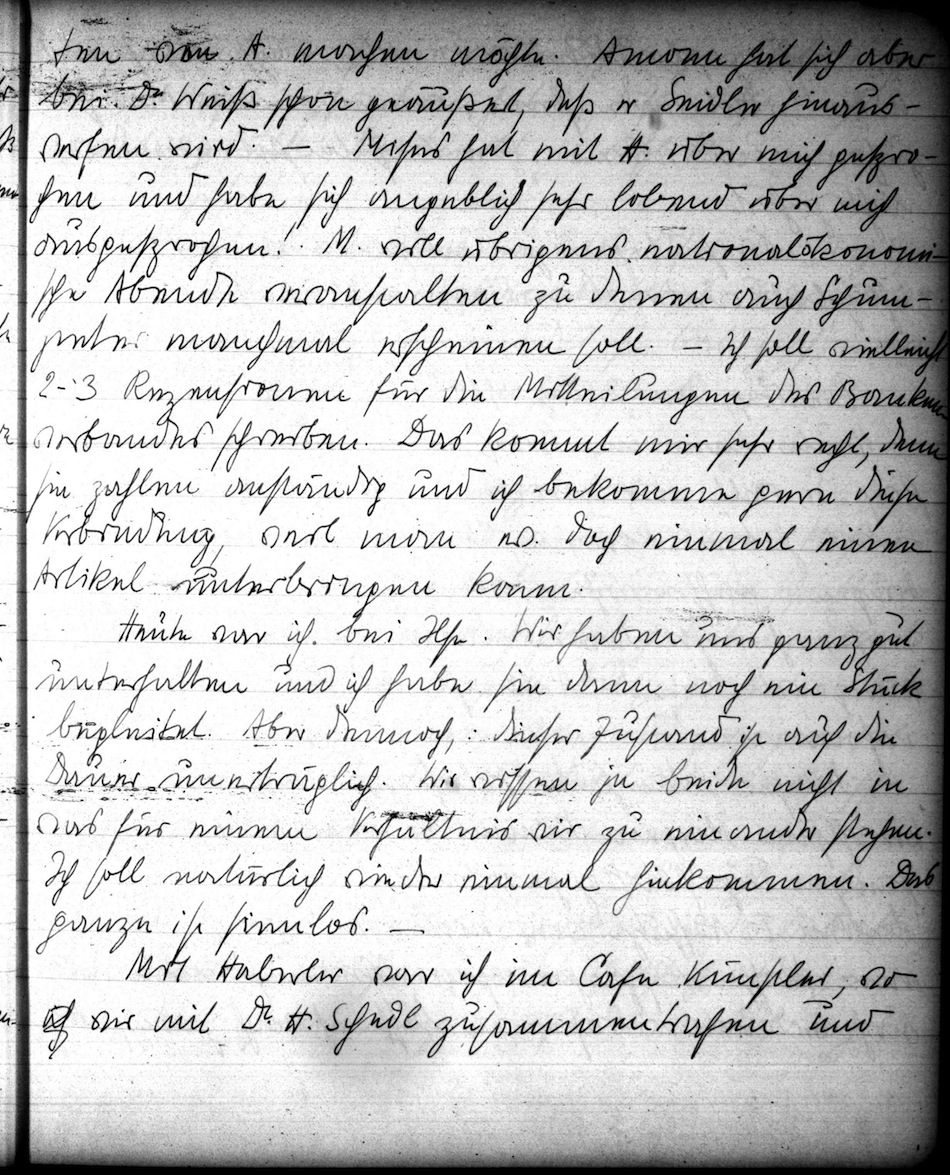 ten von A. machen möchte. Amonn hat sich aber
bei Dr. Weiß schon geäußert, daß er Seidler hinaus-
werfen wird. — Mises hat mit A. über mich gespro-
chen und habe sich angeblich sehr lobend über mich
ausgesprochen! M. will übrigens nationalökonomi-
sche Abende veranstalten zu denen auch Schum-
peter manchmal erscheinen soll. — Ich soll vielleicht
2-3 Rezensionen für die Mitteilungen des Banken
verbandes schreiben. Das kommt mir sehr recht, denn
sie zahlen anständig und ich bekomme gern diese
Verbindung, weil man ev. doch einmal einen
Artikel unterbringen kann.
Heute war ich bei Ilse. Wir haben uns ganz gut
unterhalten und ich habe sie dann noch ein Stück
begleitet. Aber dennoch,: dieser Zustand ist auf die
Dauer unerträglich. Wir wissen ja beide nicht in
was für einem Verhältnis wir zu einander stehen.
Ich soll natürlich wieder einmal hinkommen. Das
ganze ist sinnlos. —
Mit Haberler war ich im Café Künstler, wo
wir mit Dr. H. Schedl zusammentrafen und